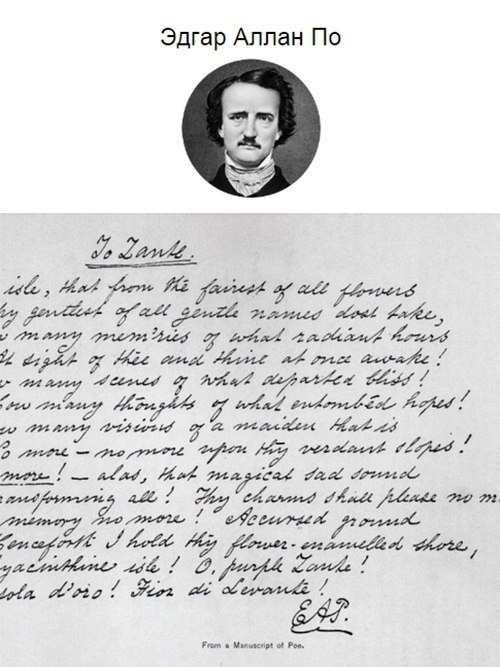 Эдгар Аллан По
To Zante.
isle, that from the fairest of all flowers
hy gentlest of all gentle names dost take,
w many mem'ries of what radiant hours
At sight of thee and thine at once awake!
w many scenes of what departed bliss!
ow many thoughts of what entombéd hopes!
w many visions of a maiden that is
o more — no more upon thy verdant slopes!
more! — alas, that magical sad sound
ransforming all! Thy charms shall please no m
memory no more! Accursed ground
enceforth I hold thy flower-enamelled shore,
yacinthine isle! O, purple Zante!
sola d'oro! Fior di Levante!
EAP.
From a Manuscript of Poe.